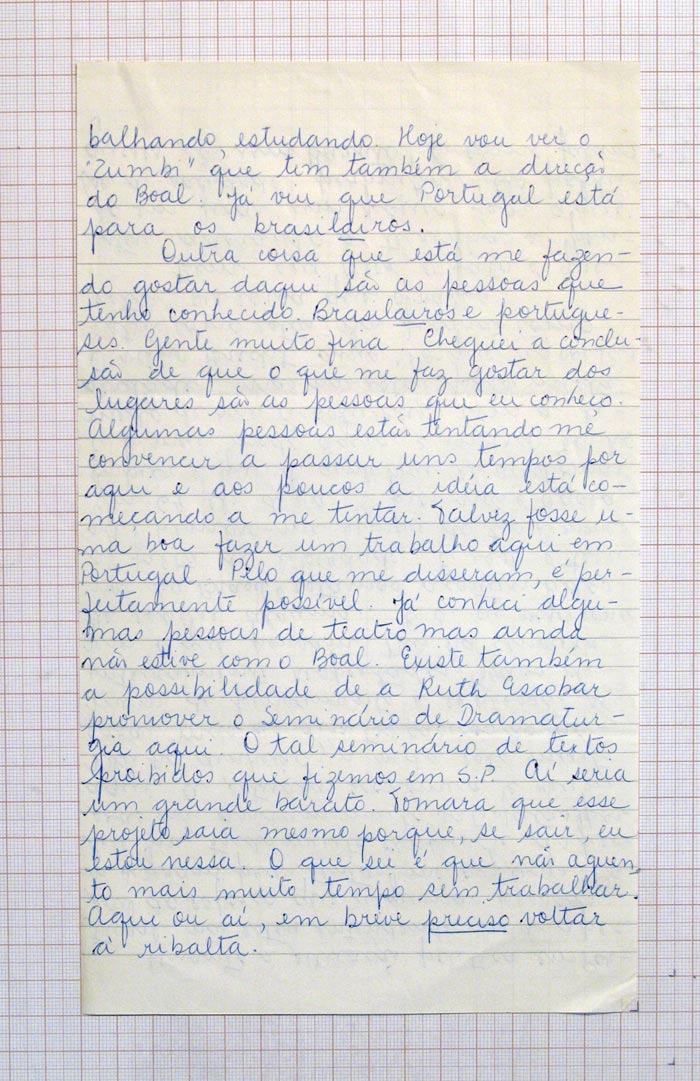 balhando, estudando. Hoje vou ver o
"Zumbi" que tem também a direção
do Boal. Já viu que Portugal está
para os brasilairos.
Outra coisa que está me fazen-
do gostar daqui são as pessoas que
tenho conhecido. Brasilairos e portugue-
ses. Gente muito fina. Cheguei a conclu-
são de que o que me faz gostar dos
lugares são as pessoas que eu conheço.
Algumas pessoas estão tentando me
convencer a passar uns tempos por
aqui e aos poucos a idéia está co-
meçando a me tentar. Talvez fosse u-
ma boa fazer um trabalho aqui em
Portugal. Pelo que me disseram, é per-
feitamente possível. Já conheci algu-
mas pessoas de teatro mas ainda
não estive com o Boal. Existe também
a possibilidade de a Ruth Escobar
promover o Seminário de Dramatur-
gia aqui. O tal seminário de textos
proibidos que fizemos em S.P. Aí seria
um grande barato. Tomara que esse
projeto saia mesmo porque, se sair, eu
estou nessa. O que sei é que não aguen-
to mais muito tempo sem trabalhar.
Aqui ou aí, em breve preciso voltar
à ribalta.